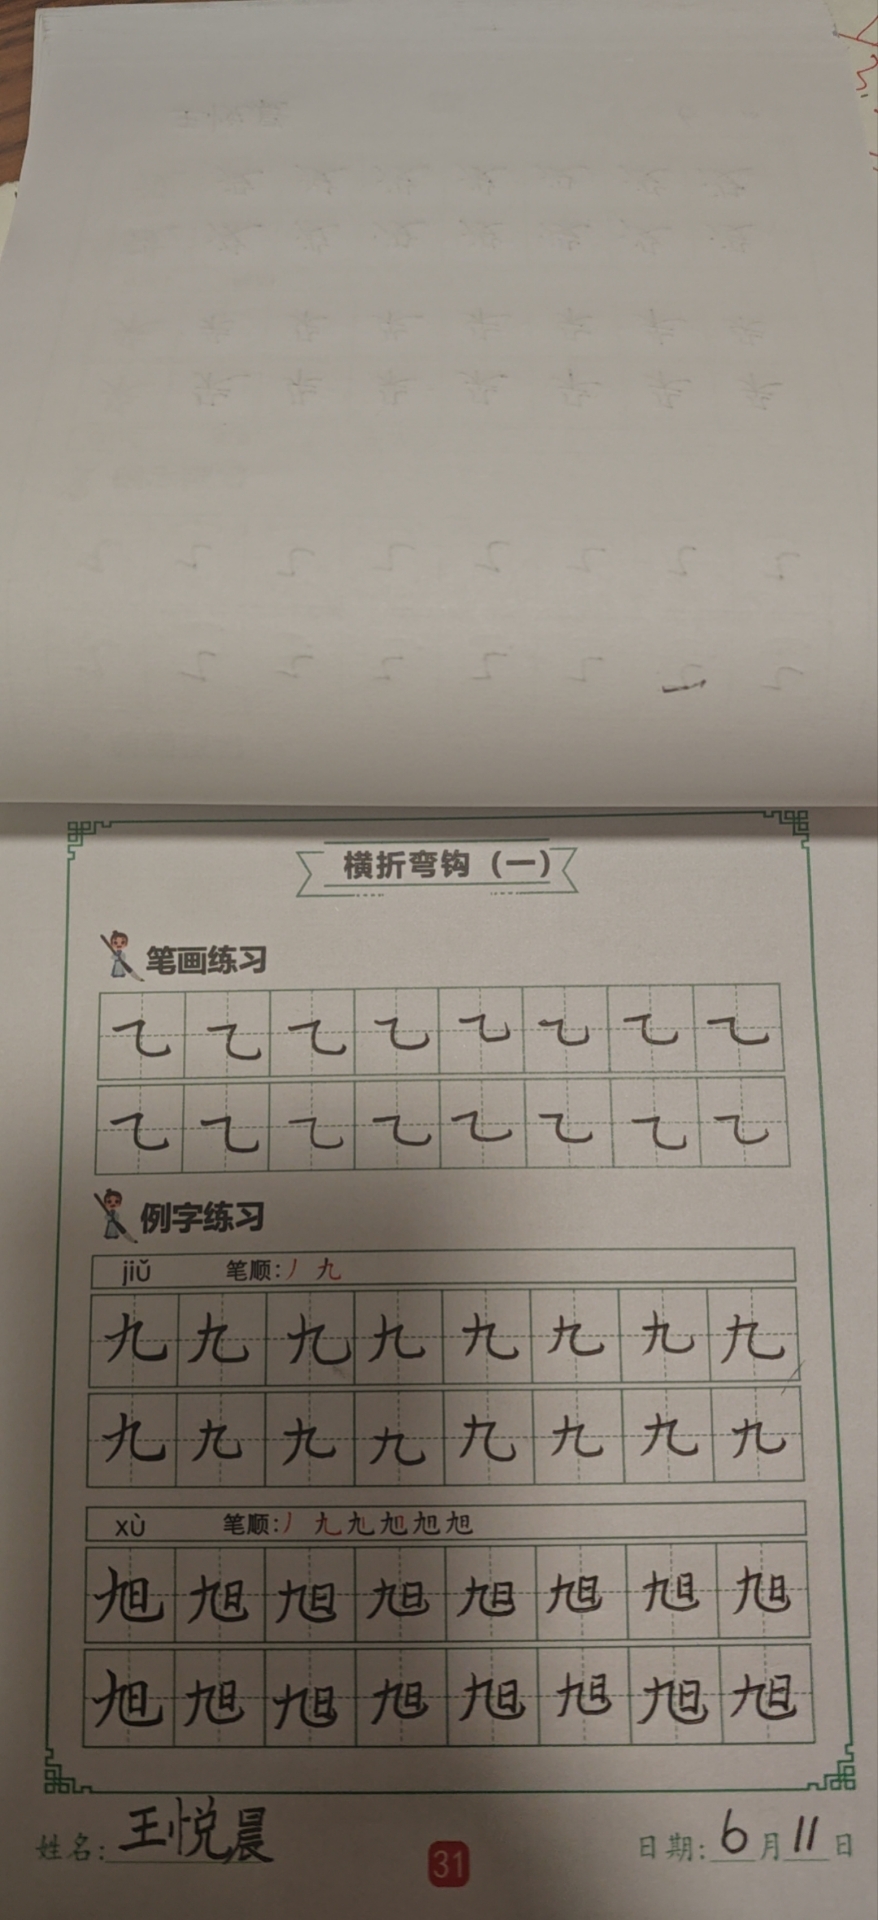 横折弯钩（一）
笔画练习
乙 乙 乙 乙 乙 乙 乙 乙
乙 乙 乙 乙 乙 乙 乙 乙
例字练习
jiǔ 笔顺:丿 九
九 九 九 九 九 九 九 九
九 九 九 九 九 九 九 九
xù 笔顺:丿 九 九 旭 旭 旭
旭 旭 旭 旭 旭 旭 旭 旭
旭 旭 旭 旭 旭 旭 旭 旭
姓名:王悦晨
31
日期:6月11日